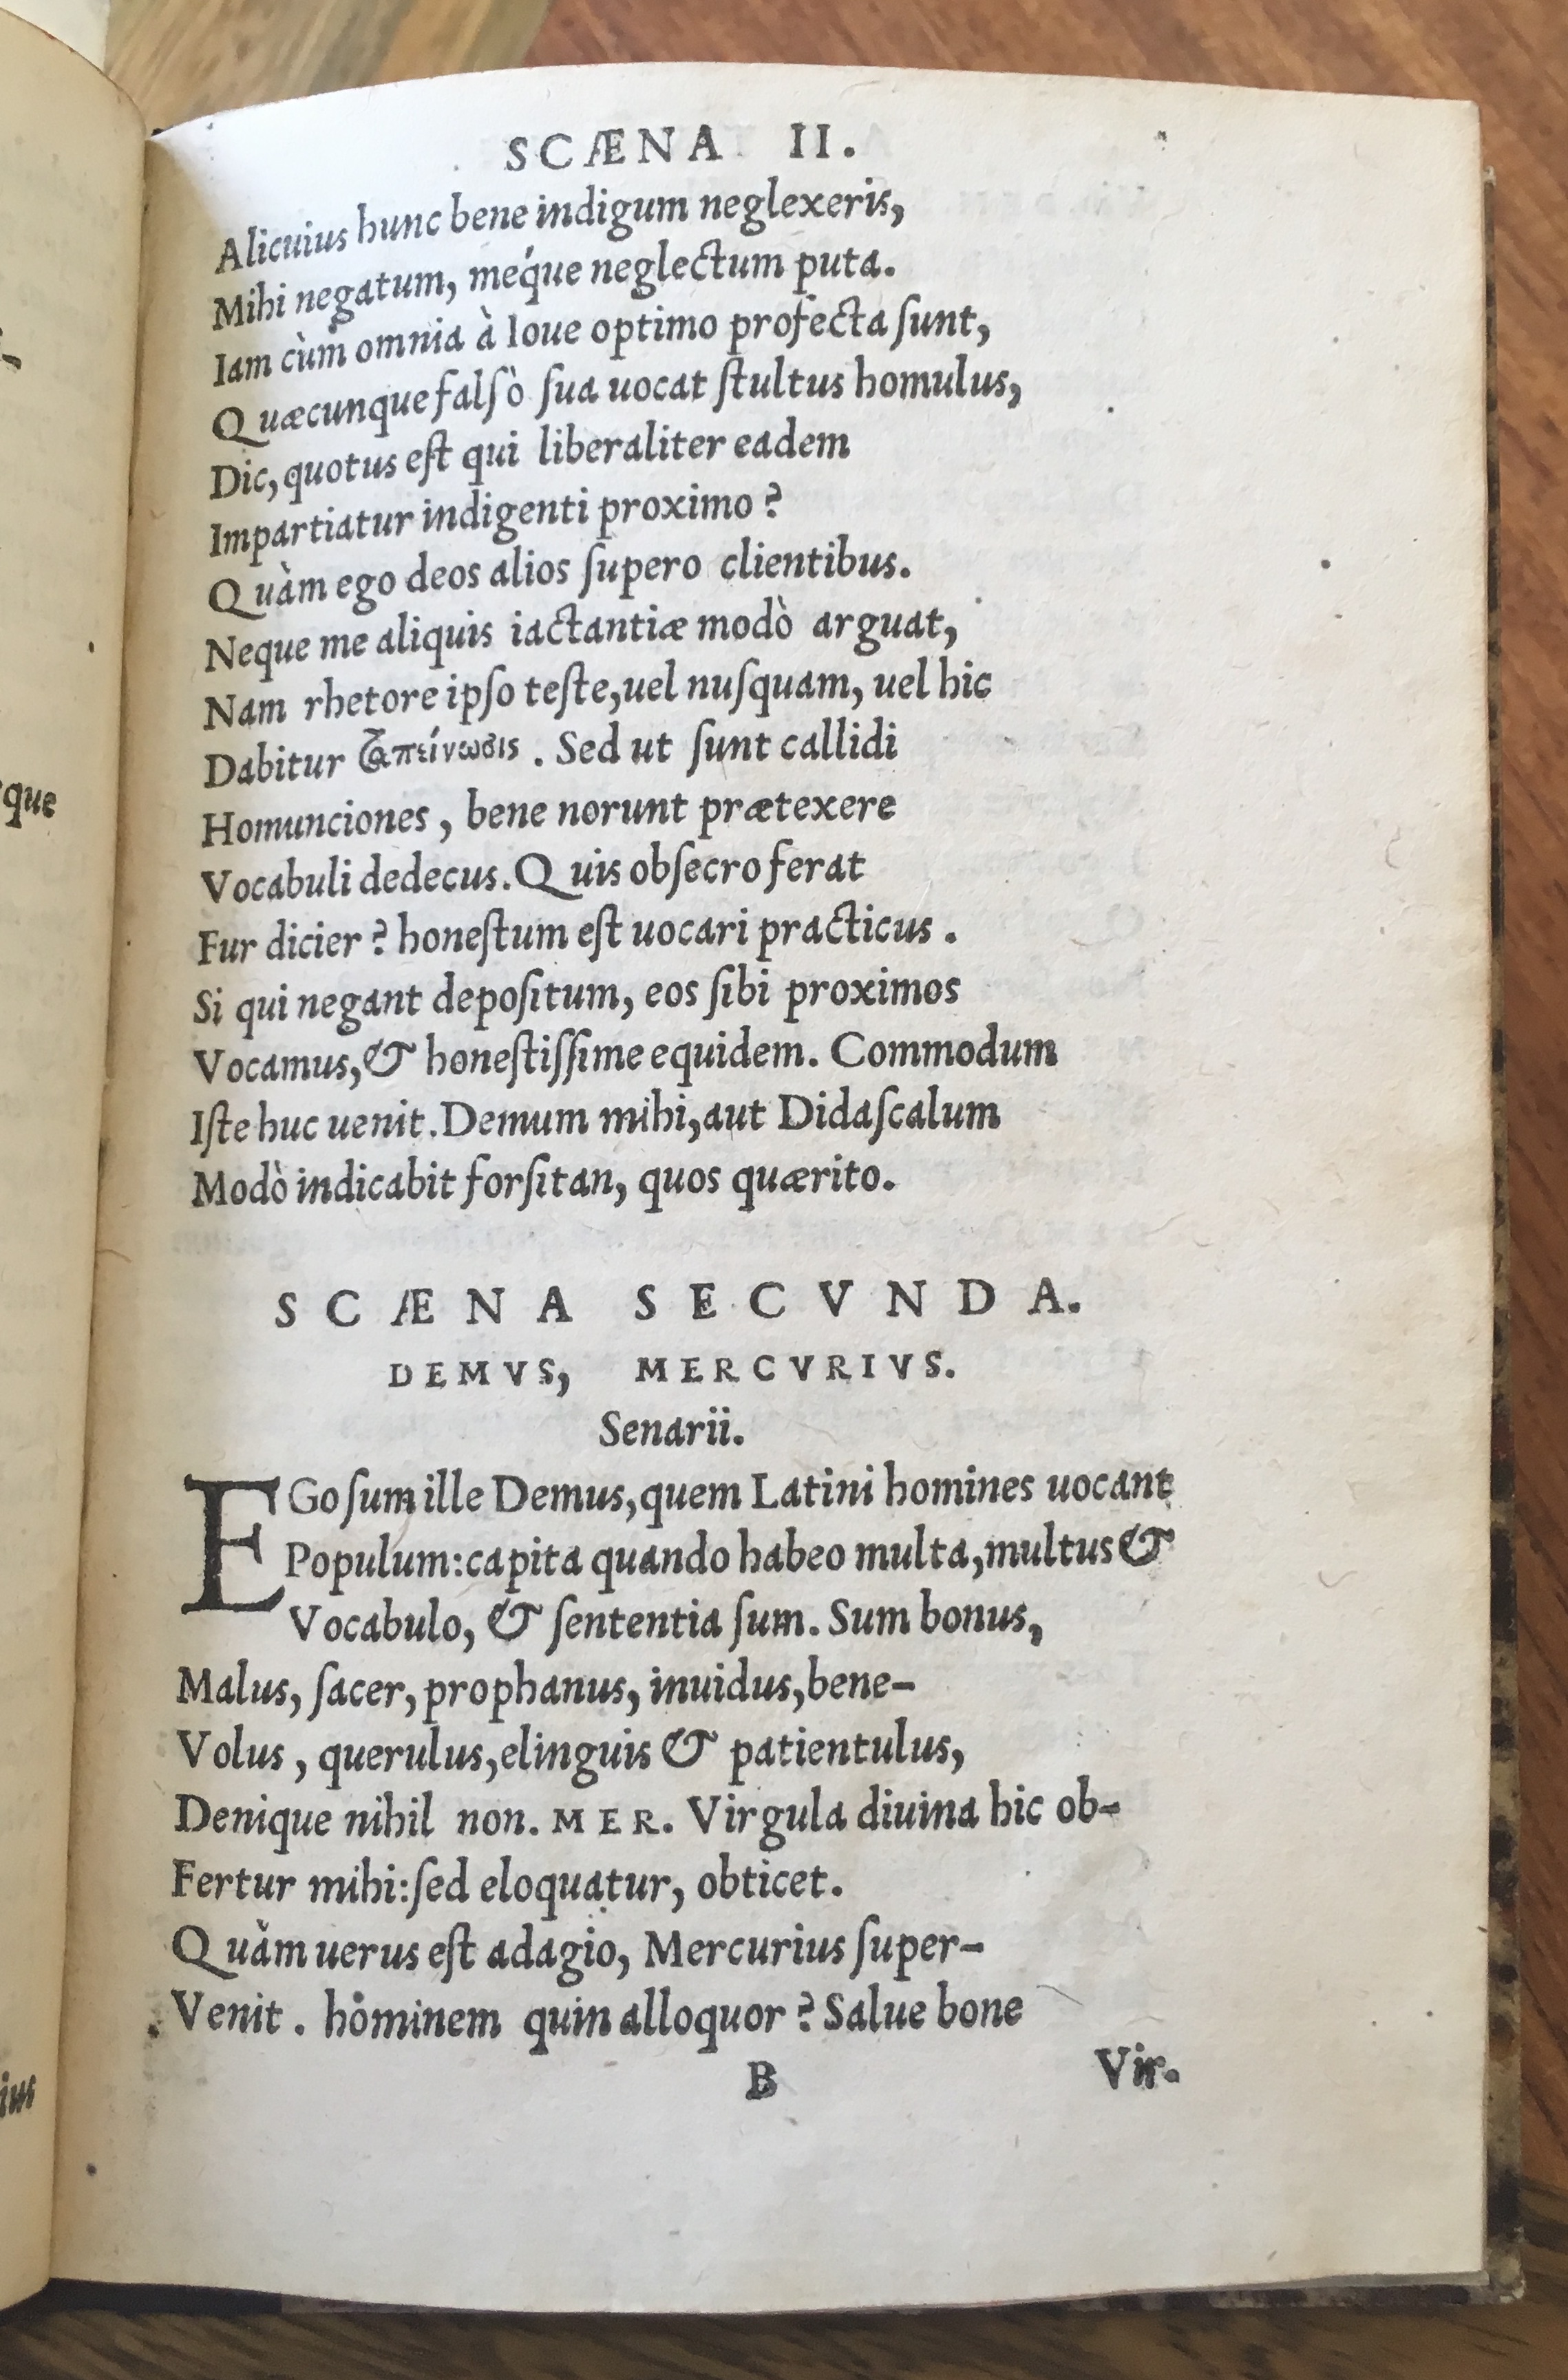 SCÆNA II.
Alicuius hunc bene indigum neglexeris,
Mihi negatum, meq́ue neglectum puta.
Iam cùm omnia à Ioue optimo profecta ſunt,
Quæcunque falſò ſua uocat ſtultus homulus,
Dic, quotus eſt qui liberaliter eadem
Impartiatur indigenti proximo?
Quàm ego deos alios ſupero clientibus.
Neque me aliquis iactantiæ modò arguat,
Nam rhetore ipſo teſte, uel nuſquam, uel hic
Dabitur ταπείνωσις. Sed ut ſunt callidi
Homunciones, bene norunt prætexere
Vocabuli dedecus. Quis obſecro ferat
Fur dicier? honeſtum eſt uocari practicus.
Si qui negant depoſitum, eos ſibi proximos
Vocamus, & honeſtiſſime equidem. Commodum
Iſte huc uenit. Demum mihi, aut Didaſcalum
Modò indicabit forſitan, quos quærito.
SCÆNA SECVNDA.
DEMVS, MERCVRIVS.
Senarii.
EGo ſum ille Demus, quem Latini homines uocant
Populum: capita quando habeo multa, multus &
Vocabulo, & ſententia ſum. Sum bonus,
Malus, ſacer, prophanus, inuidus, bene-
Volus, querulus, elinguis & patientulus,
Denique nihil non. MER. Virgula diuina hic ob-
Fertur mihi: ſed eloquatur, obticet.
Quàm uerus eſt adagio, Mercurius ſuper-
Venit. hominem quin alloquor? Salue bone
B Vir.
que
ius